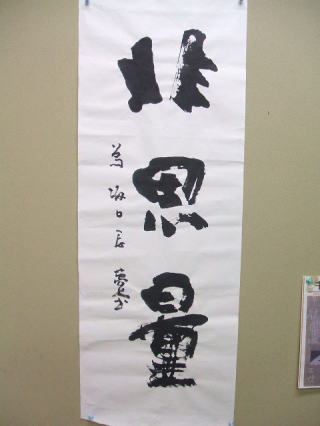 非思量
為海口居